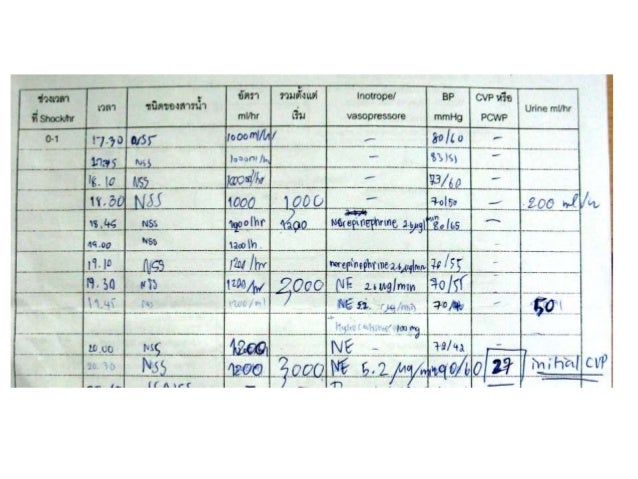 ช่วงเวลา ที่ Shock/hr เวลา ชนิดของสารน้ำ อัตรา ml/hr รวมตั้งแต่ เริ่ม Inotrope/ vasopressore BP mmHg CVP หรือ PCWP Urine ml/hr
0-1 17.30 NSS 1000 ml/hr - 80/60 -
17.45 NSS 1000ml/h - 83/51 -
18.10 NSS 1000ml/hr - 73/60 -
18.30 NSS 1000 1000 - 70/50 - 200 ml/h
18.45 NSS /hr 1200 Norepinephrine 2.6µg/min 80/65 -
19.00 NSS 1200 /h
19.10 NSS 1200 /hr norepinephrine 2.6µg/min 70/55 -
19.30 NSS 1200/hr 2000 NE 2.6 µg/min 70/55 -
19.45 NSS 1200/ml NE µg/min 70/ 50
+ Hydrocortisone 100 mg
20.00 NSS 1200 NE - -
NSS 1200 3000 NE 5.2 µg/min 90/60 27 initial CVP